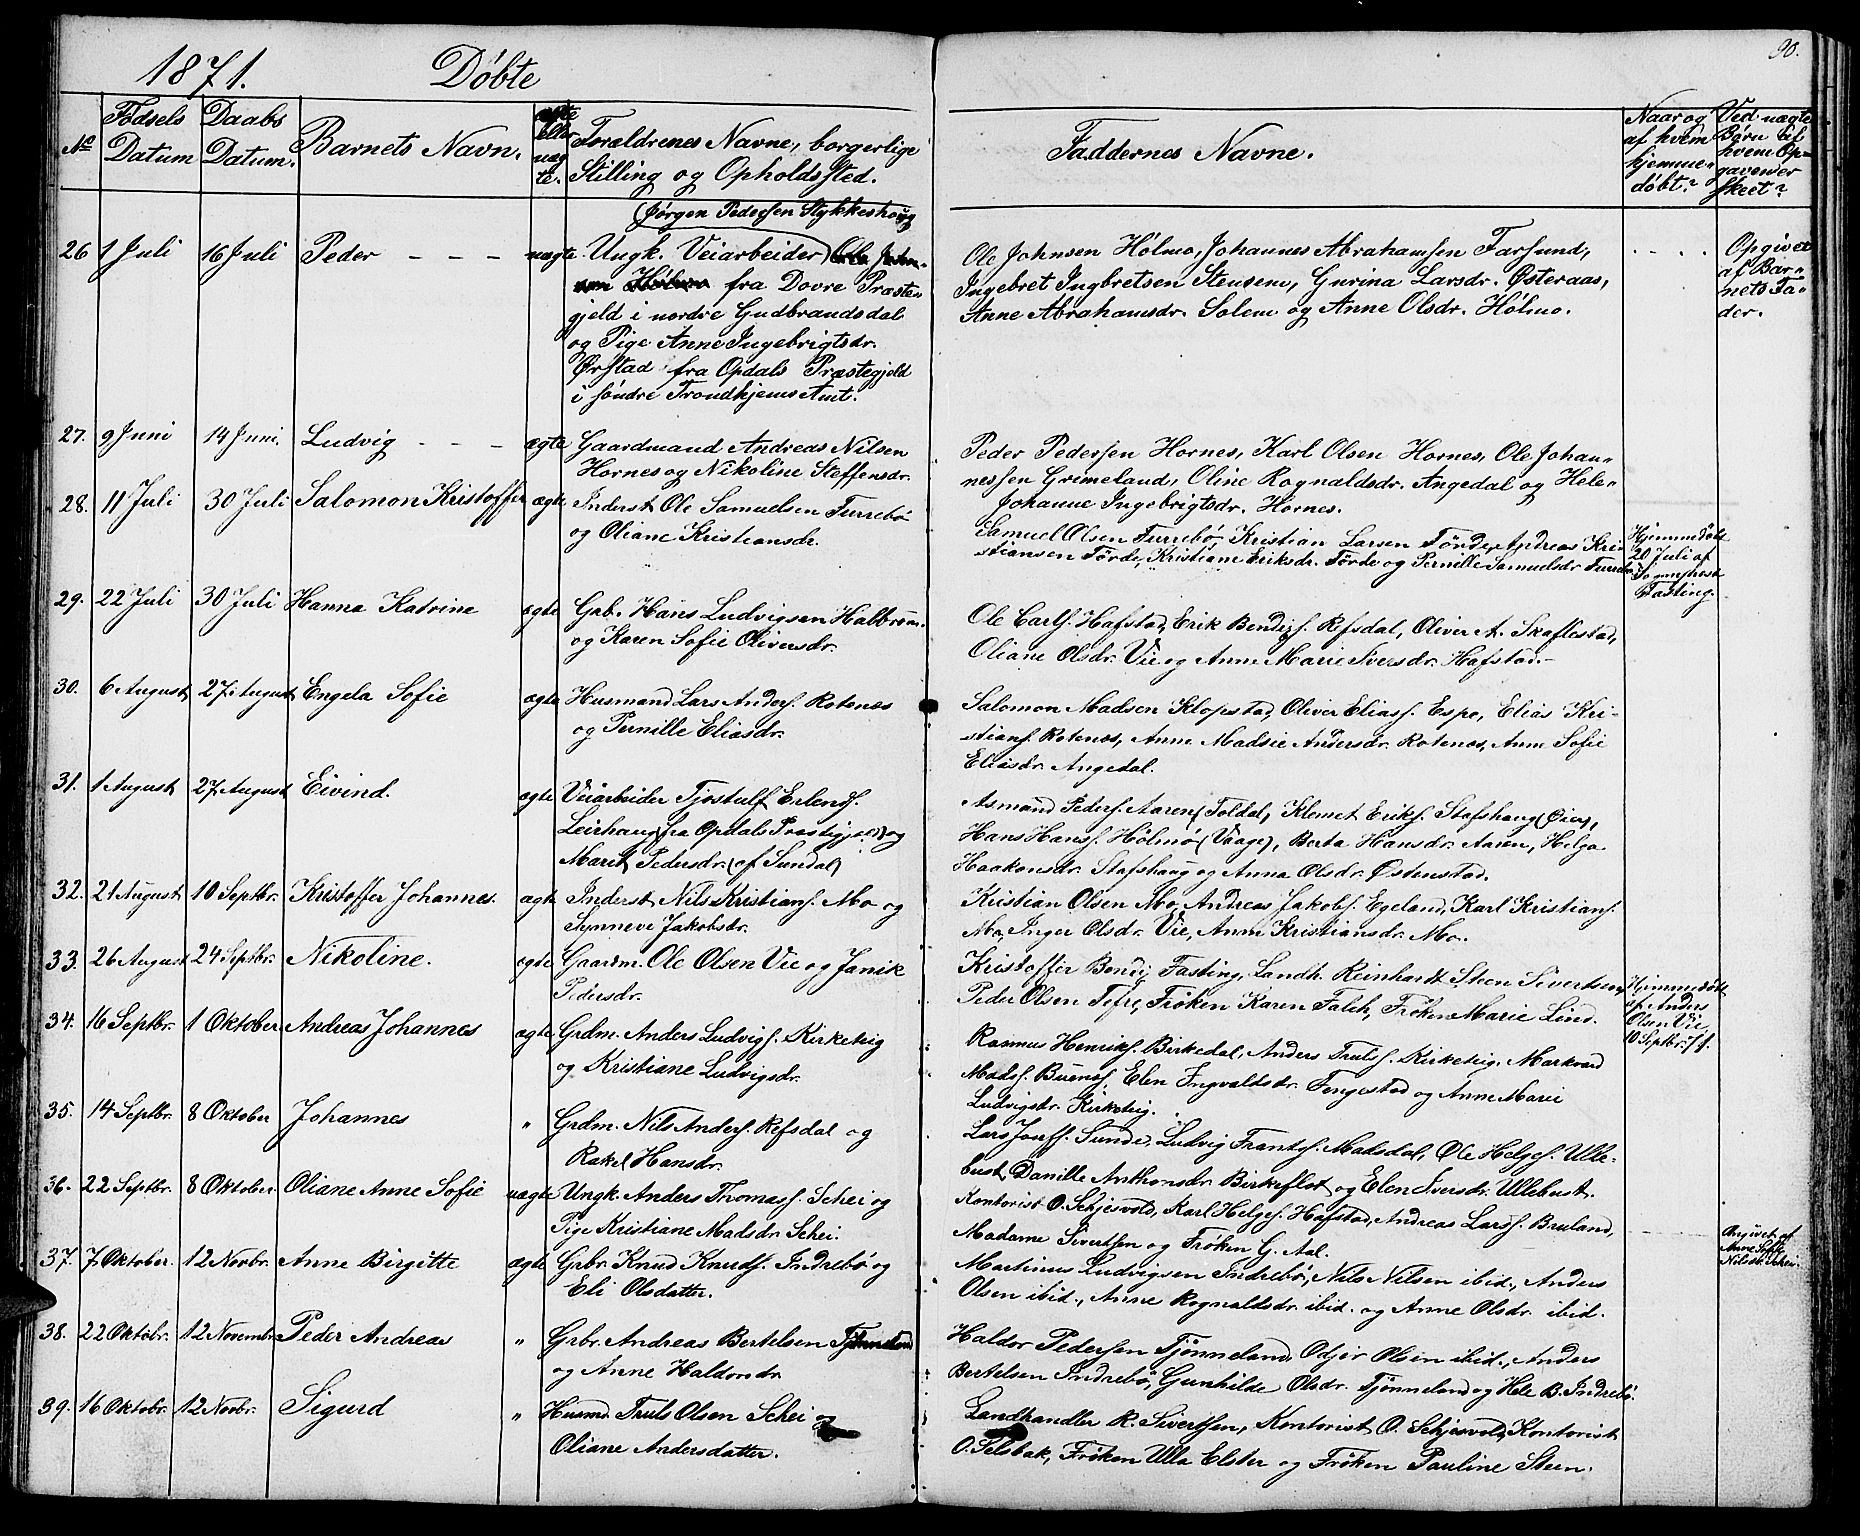 90.
1871. Döbte
No
Födsels Datum
Daabs Datum.
Barnets Navn.
ægte eller uægte.
Forældrenes Navne, borgerlige
Stilling og Opholdssted.
Faddernes Navne.
Naar og
af hvem
hjemme-
döbt?
Ved uægte
Börn af
hvem Op-
gaven er
skeet?
(Jörgen Pedersen Stykkeshoug
26 1 Juli 16 Juli Peder - - - uægte. Ungk. Veiarbeider)
fra Dovre Præste-
gjeld i nordre Gudbrandsdal
og Pige Anne Ingebrigtsdr.
Ørstad fra Opdals Præstegjeld
i söndre Trondhjems Amt.
Ole Johnsen Hólmo, Johannes Abrahamsen Farsund,
Ingebret Ingbretsen Stensem, Gurina Larsdr. Østeraas,
Anne Abrahamsdr. Solem og Anne Olsdr. Hólmo.
Opgivet
af Bar-
nets Fa-
der.
27. 9 Juni 14 Juni. Ludvig - - - ægte Gaardmand Andreas Nilsen
Hornes og Nikoline Steffensdr.
Peder Pedersen Hornes, Karl Olsen Hornes, Ole Johan-
nessen Grimeland, Oline Rognaldsdr. Angedal og Hele-
Johanne Ingebrigtsdr. Hornes.
28. 11 Juli 30 Juli Salomon Kristoffer ægte Inderst Ole Samuelsen Furrebö
og Oliane Kristiansdr.
Samuel Olsen Furrebö, Kristian Larsen Förde, Andreas Kri-
stiansen Förde, Kristiane Eriksdr. Förde og Pernille Samuelsdr Furrebö
Hjemmedöbt
20 Juli af
Sognepræst
Fasting.
29. 22 Juli 30 Juli Hanna Katrine ægte Grb. Hans Ludvigsen Halbrein.
og Karen Sofie Oliversdr.
Ole Carls. Hafstad, Erik Bendixs. Refsdal, Oliver A. Skaflestad,
Oliane Olsdr. Vie og Anne Marie Iversdr. Hafstad.-
30. 6 August 27 August Engela Sofie ægte Husmand Lars Anders. Rotenæs
og Pernille Eliasdr.
Salomon Madsen Klopstad, Oliver Elias. Espe, Elias Kri-
stians. Rotenæs, Anne Madsie Andersdr. Rotenæs, Anne Sofie
Eliasdr. Angedal.
31. 1 August 27 August Eivind. ægte Veiarbeider Tjostulf Erlends.
Leirhaug (fra Opdals Præstegjeld) og
Marit Pedersdr. (af Sundal)
Asmand Peders. Aaren (Toldal, Klemet Eriks. Stafshaug (Öier),
Hans Hans. Hólmö (Vaage), Berta Hansdr. Aaren, Helga
Haakonsdr. Stafshaug og Anna Olsdr. Østenstad.
32. 21 August 10 Septbr. Kristoffer Johannes. ægte Inderst Nils Kristians. Mo og
Synneve Jakobsdr.
Kristian Olsen Mo, Andreas Jakobs. Egeland, Karl Kristians.
Mo, Inger Olsdr. Vie, Anne Kristiansdr. Mo.
33. 26 August 24 Septbr. Nikoline. ægte Gaardm. Ole Olsen Vie og Janik
Pedersdr.
Kristoffer Bendz Fasting, Landh. Reinhardt Steen Sivertsen,
Peder Olsen Tefre, Fröken Karen Falch, Fröken Marie Lind.
Hjemmedöbt
af Anders
Olsen Vie
10 Septbr. 71.
34. 16 Septbr. 1 Oktober Andreas Johannes ægte Grdm. Anders Ludvigs. Kirketeig
og Kristiane Ludvigsdr.
Rasmus Henriks. Birkedal, Anders Truls. Kirketeig, Markvard
Mads. Buenes, Elen Ingvaldsdr. Fengestad og Anne Marie
Ludvigsdr. Kirketeig.
35. 14 Septbr. 8 Oktober Johannes " Grdm. Nils Anders. Refsdal og
Rakel Hansdr.
Lars Joers. Sunde, Ludvig Frants. Madsdal, Ole Helges. Ulle-
bust, Danille Anthonsdr. Birkeflot og Elen Iversdr. Ullebust.
36. 22 Septbr. 8 Oktober. Oliane Anne Sofie uægte Ungk. Anders Thomass. Schei og
Pige Kristiane Madsdr. Schei.
Kontorist O. Schjesvold, Karl Helges. Hafstad, Andreas Lars. Bruland,
Madame Sivertsen og Fröken G. Aal.
Angivet af
Anne Sofie
Nilsdr. Schei.
37. 7 Oktober. 12 Novbr. Anne Birgitte ægte Grbr. Knud Knuds. Indrebö og
Eli Olsdatter.
Martinus Ludvigsen Indrebö, Nils Nilsen ibid., Anders
Olsen ibid., Anne Rognaldsdr. ibid. og Anne Olsdr. ibid.
38. 22 Oktobr. 12 Novembr. Peder Andreas " Grbr. Andreas Bertelsen
og Anne Haldorsdr.
Haldor Pedersen Tjönneland, Odjer Olsen ibid., Anders
Bertelsen Indrebö, Gunhilde Olsdr. Tjönneland og Hele B. Indrebö.
39. 16 Oktobr. 12 Novbr. Sigurd " Husmd Truls Olsen Schei og
Oliane Andersdatter.
Landhandler R. Sivertsen, Kontorist O. Schjesvold, Kontorist
O. Selsbak, Fröken Ulla Elster og Fröken Pauline Steen.